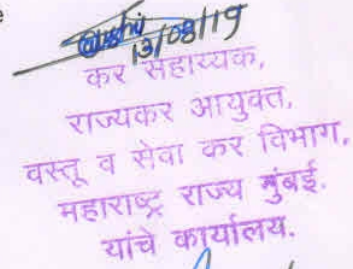 13/08/19
कर सहाय्यक,
राज्यकर आयुक्त,
वस्तू व सेवा कर विभाग,
महाराष्ट्र राज्य मुंबई.
यांचे कार्यालय.